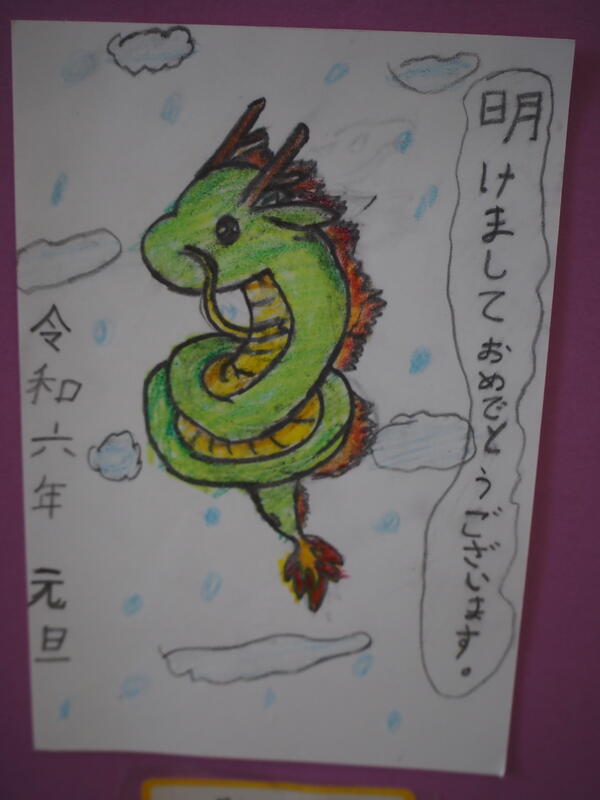 明けましておめでとうございます。
令和六年 元旦